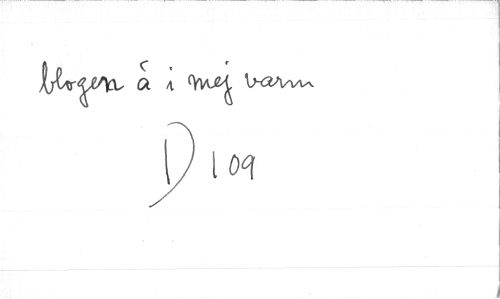 blogen å i mej varm
D 109